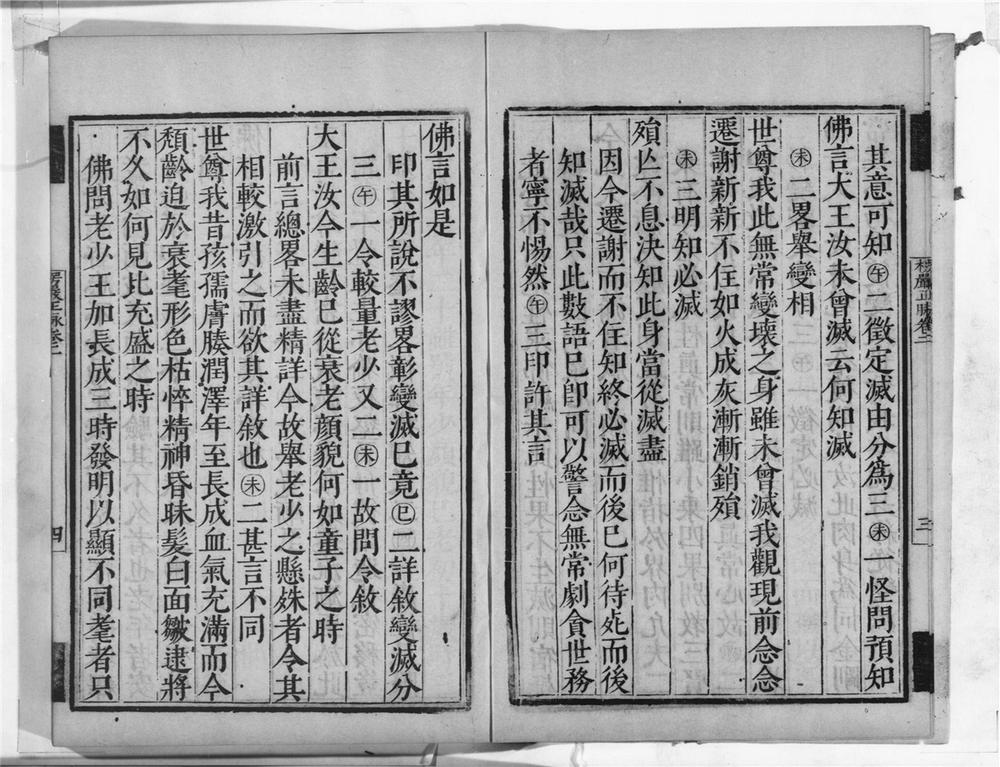 其意可知㊍二徵定滅由分為三㊍一怪問預知
佛言大王汝未曾滅云何知滅
㊍二畧舉變相
世尊我此無常變壞之身雖未曾滅我觀現前念念
遷謝新新不住如火成灰漸漸銷殞
殞亾不息決知此身當從滅盡
㊍三明知必滅
因今遷謝而不住知終必滅而後已何待死而後
知滅哉只此數語已卽可以警念無常劇貪世務
者寧不惕然㊍三印許其言
佛言如是
印其所說不謬畧彰變滅已竟㊍二詳敘變滅分
三㊍一令較量老少又二㊍一故問令敘
大王汝今生齡已從衰老顏貌何如童子之時
前言總畧未盡精詳今故舉老少之懸殊者令其
相較激引之而欲其詳敘也㊍二甚言不同
世尊我昔孩孺膚腠潤澤年至長成血氣充滿而今
頹齡迫於衰耄形色枯悴精神昏昧髮白面皺逮將
不久如何見比充盛之時
佛問老少王加長成三時發明以顯不同耄者只
四
三